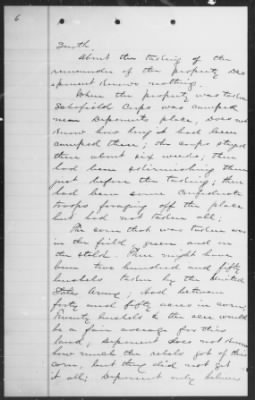 6
Smith.
About the taking of the
remainder of the property Dep
onent knows nothing.
When the property was taken
Schofield Corps was camped
near Deponents place, does not
know how long it had been
camped there; the corps stayed
there about six weeks; there
had been skirmishing there
just before the taking; there
had been some Confederate
troops foraging off the place
but had not taken all.
The corn that was taken was
in the field green and in
the stalk. There might have
been two hundred and fifty
bushels taken by the United
States Army; had between
forty and fifty acres in corn;
Twenty bushels to the acre would
be a fair average for this
land; Deponent does not know
how much the rebels got of this
corn, but they did not get
it all; Deponent only